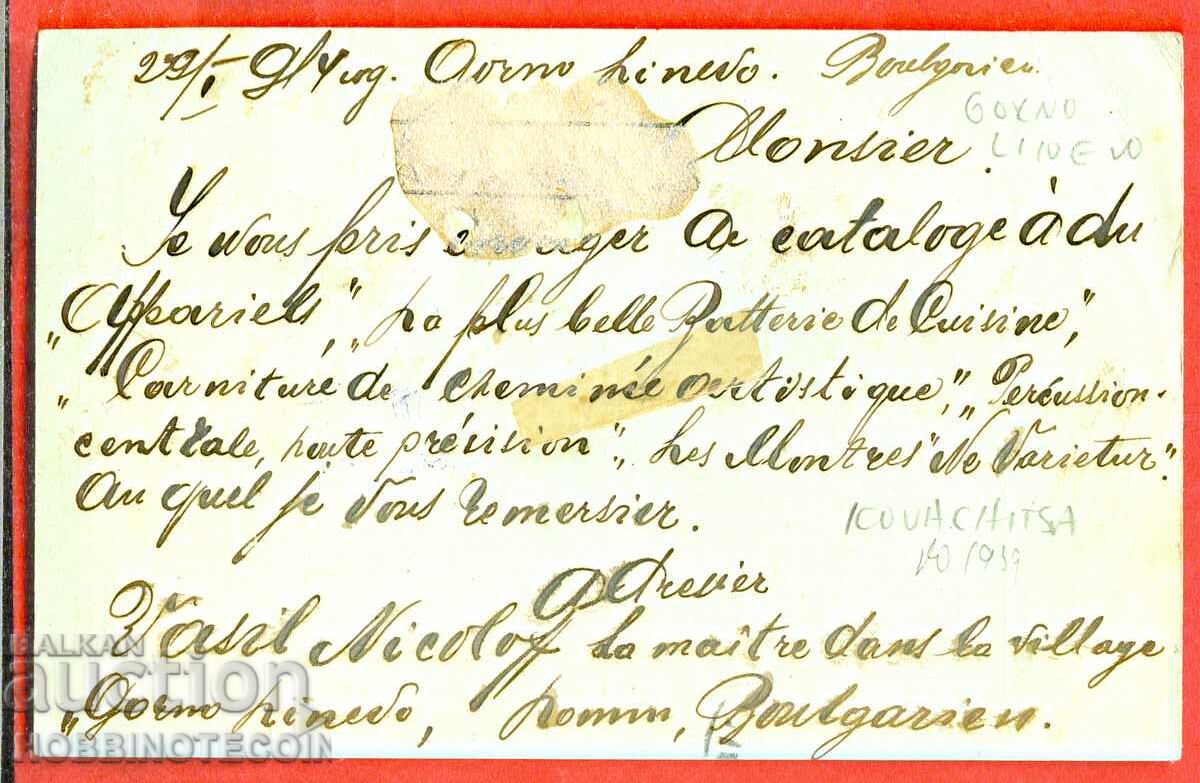 22/I Gorno Linevo. Boulgarien
GORNO
LINEVO
Monsier.
Je vous pris de cataloge à du
„Appariels”, „La plus belle Batterie de Cuisine”,
„Carniture de cheminée artistique”, „Percussion-
centrale, haute présision”, „Les Montres "Ne Varietur”.
Au quel je vous remersier.
KOVACHITSA
Adresier
Vasil Nicoloff La maître dans la village
„Gorno Linevo, Lomm, Boulgarien.
BALKAN
auction
HOBBINOTECOIN